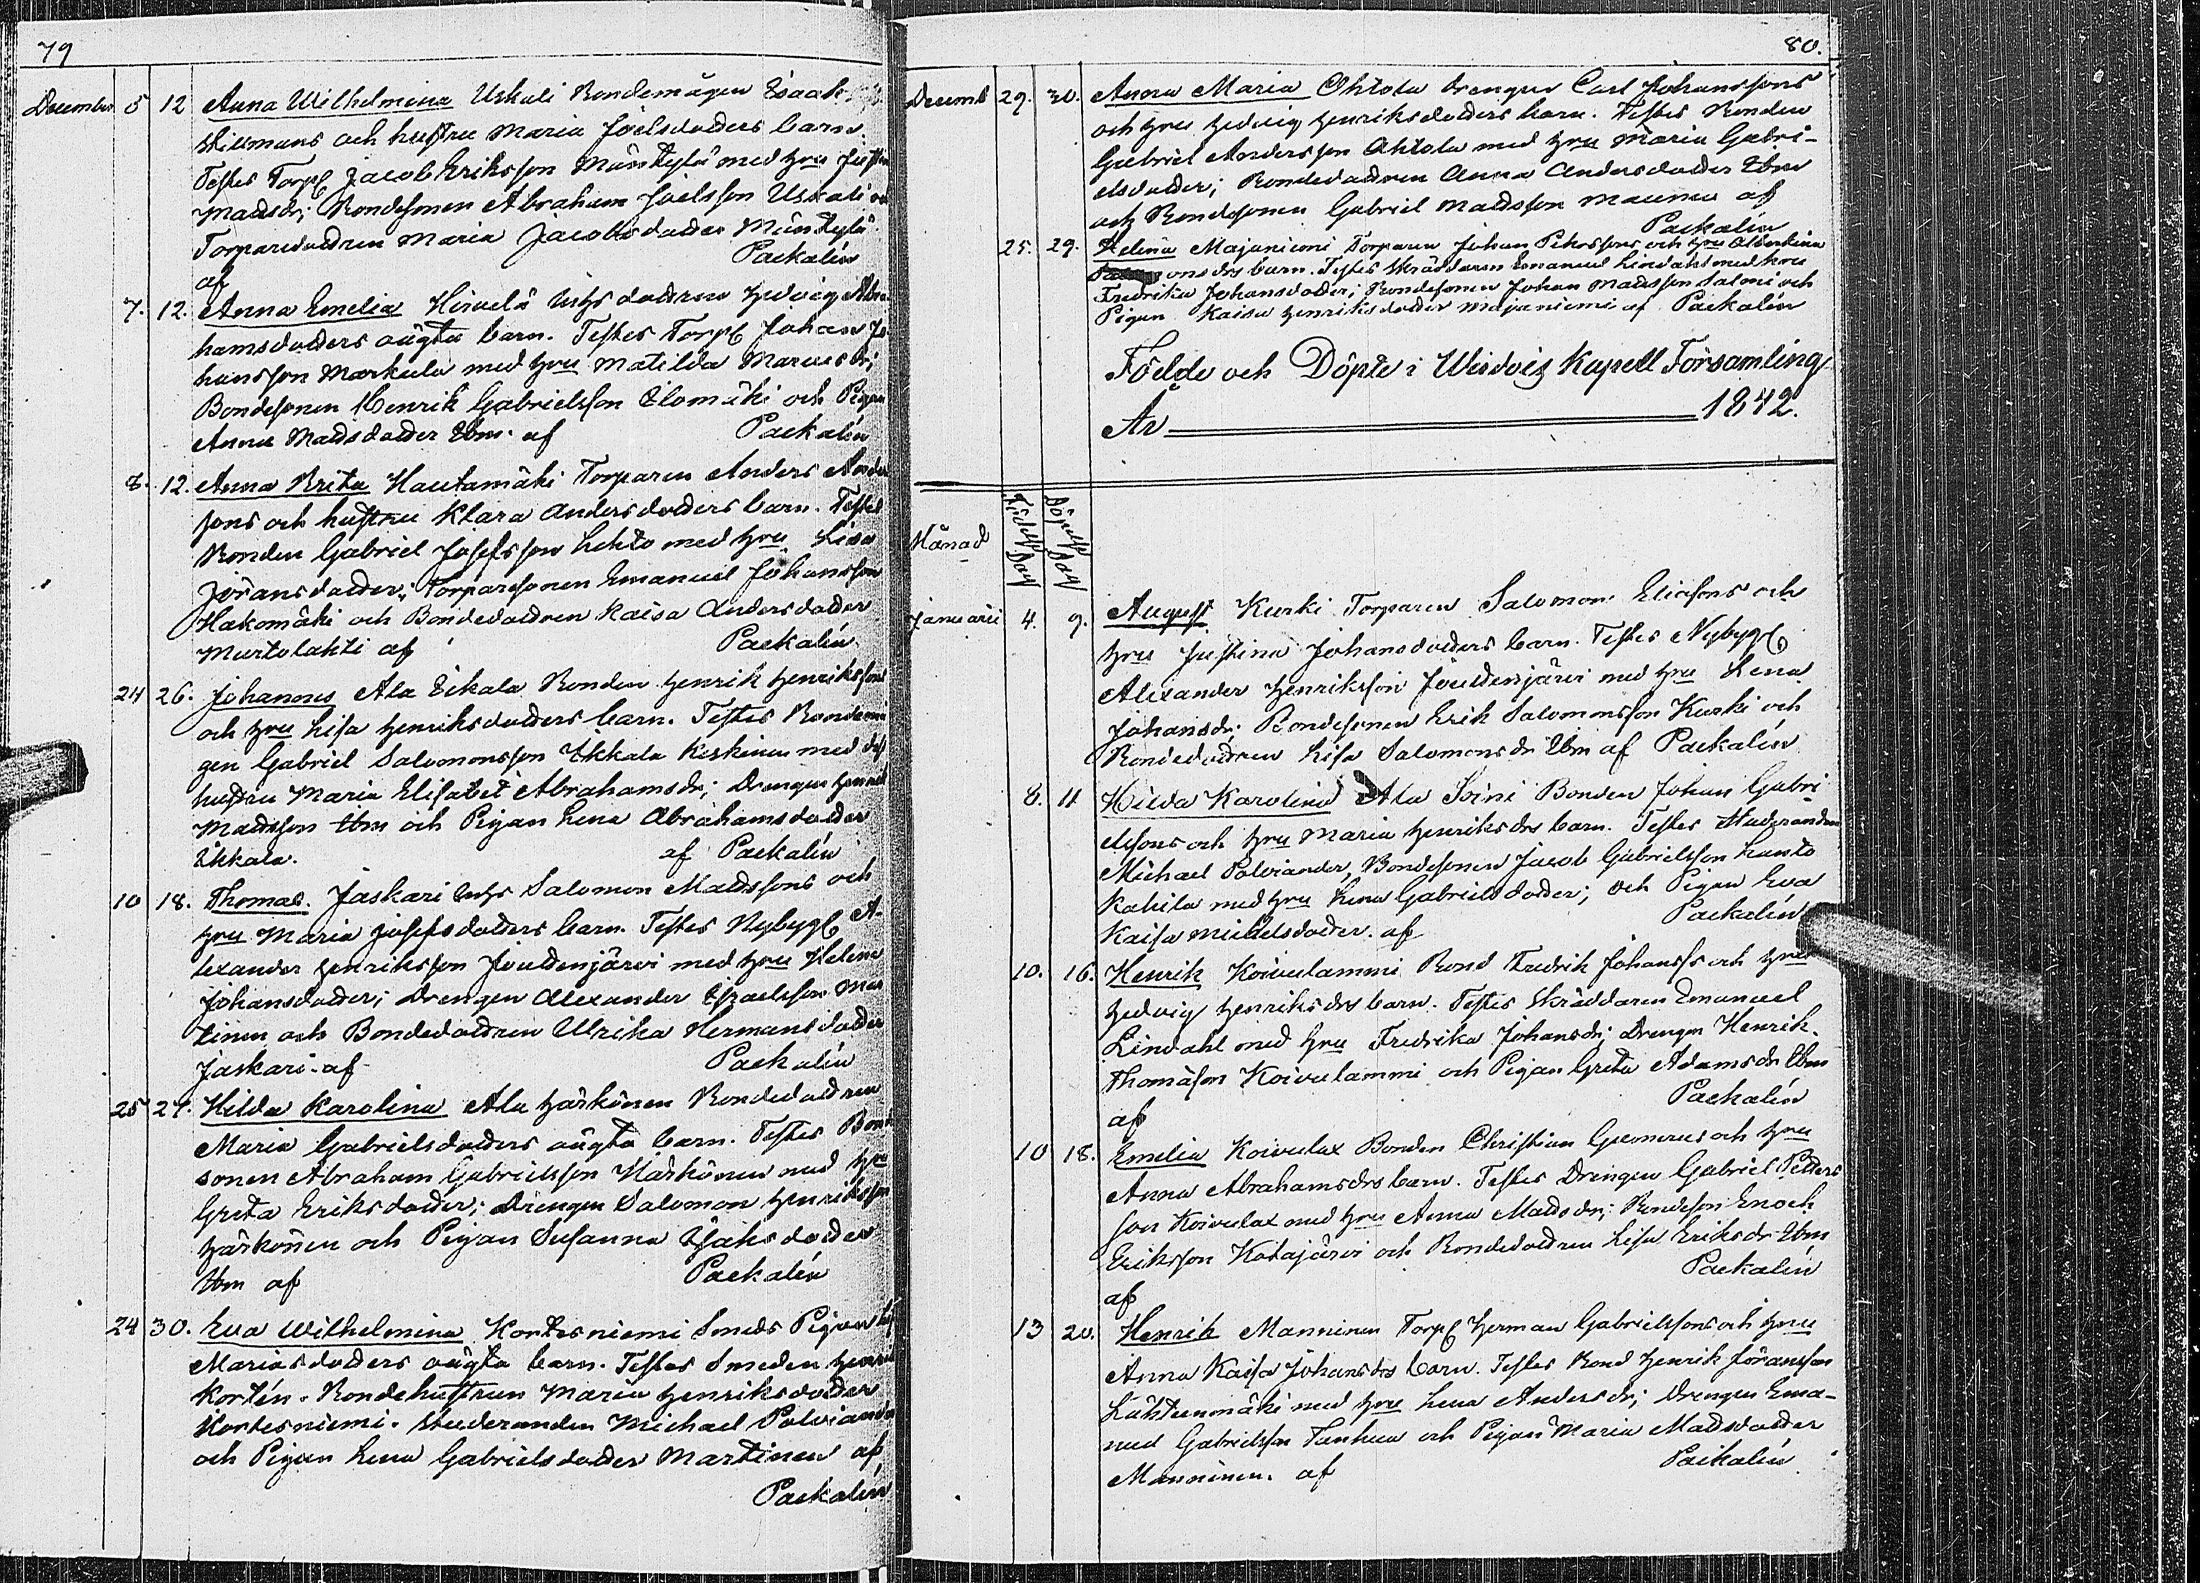 79
December 5 12 Anna Wilhelmina Uskali Bondemågen Isaak
Stillmans och hustru Maria Joelsdotters barn.
Testes Torp Jacob Eriksson Mäntylä med hru
Mattsdr; Bondesonen Abraham Joelsson Uskali
Torparedottren Maria Jacobsdotter Mäntylä
af Packalén
7. 12. Anna Emelia Hirvelä Inhs dottren Hedvig Abra
hamsdotters oägta barn. Testes Torp Johan Jo
hansson Markula med hru Matilda Marcusdr;
Bondesonen Henrik Gabrielsson Elomäki och Pigan
Anna Mattsdotter Ibm. af Packalén
8. 12. Anna Brita Hautamäki Torparen Anders Anders
sons och hustru Klara Andersdotters barn. Testes
Bonden Gabriel Josefsson Lehto med hru Lisa
Jöransdotter; Torparesonen Emanuel Johansson
Hakomäki och Bondedottren Kaisa Andersdotter
Murtolahti af Packalén
24 26. Johannes Ala Eikala Bonden Henrik Henrikssons
och hru Lisa Henriksdotters barn. Testes Bondemå
gen Gabriel Salomonsson Ekkala Keskinen med
hustru Maria Elisabet Abrahamsdr; Drengen Henrik
Mattsson Ibm och Pigan Lena Abrahamsdotter
Ekkala. af Packalén
10 18. Thomas. Jaskari Inhs Salomon Mattssons och
hru Maria Josefsdotters barn. Testes Nybygg A-
lexander Henriksson Jouttenjärvi med hru Helena
Johansdotter; Drengen Alexander Israelsson Mar
tinen och Bondedottren Ulrika Hermansdotter
Jaskari. af Packalén
25 27. Hilda Karolina Ala Härkönen Bondedottren
Maria Gabrielsdotters oägta barn. Testes Bond
sonen Abraham Gabrielsson Härkönen med hru
Greta Eriksdotter; Drengen Salomon Henriksson
Härkönen och Pigan Susanna Isaksdotter
Ibm af Packalén
24 30. Eva Wilhelmina Kortesniemi Smeds Pigan
Mariasdotters oägta barn. Testes Smeden Henrik
Kortén. Bondehustrun Maria Henriksdotter
Kortesniemi. Studeranden Michael Polviander
och Pigan Lena Gabrielsdotter Martinen af
Packalén
80.
Decemb 29. 30. Anna Maria Ohtola Drengen Carl Johanssons
och hru Hedvig Henriksdotters barn. Testes Bonden
Gabriel Andersson Ohtola med hru Maria Gabri-
elsdotter; Bondedottren Anna Andersdotter Ibm
och Bondesonen Gabriel Mattsson Maunu af
Packalén
25. 29. Helena Majaniemi Torparen Johan Peterssons och hru Albertina
onsdrs barn. Testes Skräddaren Emanuel Lindahl med hru
Fredrika Johansdotter; Bondesonen Johan Mattsson Salmi och
Pigan Kaisa Henriksdotter Majaniemi af Packalén
Födde och Döpte i Wisdvig Kapell Församling
År 1842.
Månad Födelse Dag Döpelse Dag
Januarii 4. 9. August Kurki Torparen Salomon Eliæsons och
hru Justina Johansdotters barn. Testes Nybygg
Alexander Henriksson Jouttenjärvi med hru Lena
Johansdr; Bondesonen Erik Salomonsson Kurki och
Bondedottren Lisa Salomonsdr Ibm af Packalén
8. 11 Hilda Karolina Ala Soini Bonden Johan Gabri
elssons och hru Maria Henriksdrs barn. Testes Studeranden
Michael Polviander, Bondesonen Jacob Gabrielsson Kunto
Kahila med hru Lena Gabrielsdotter; och Pigan Eva
Kaisa Michelsdotter. af Packalén
10. 16. Henrik Koivulammi Bond Fredrik Johanss och hru
Hedvig Henriksdrs barn. Testes Skräddaren Emanuel
Lindahl med hru Fredrika Johansdr; Drengen Henrik
Thomäson Koivulammi och Pigan Greta Adamsdr Ibm
af Packalén
10 18. Emelia Koivulax Bonden Christian Gummerus och hru
Anna Abrahamsdrs barn. Testes Drengen Gabriel Petters
son Koivulax med hru Anna Mattsdr; Bondeson Enoch
Eriksson Kotajärvi och Bondedottren Lisa Eriksdr Ibm
af Packalén
13 20. Henrik Manninen Torp Herman Gabrielssons och hru
Anna Kaisa Johansdrs barn. Testes Bond Henrik Jöransson
Lähteenmäki med hru Lena Andersdr; Drengen Ema-
nuel Gabrielsson Tunhua och Pigan Maria Mattsdotter
Manninen. af Packalén